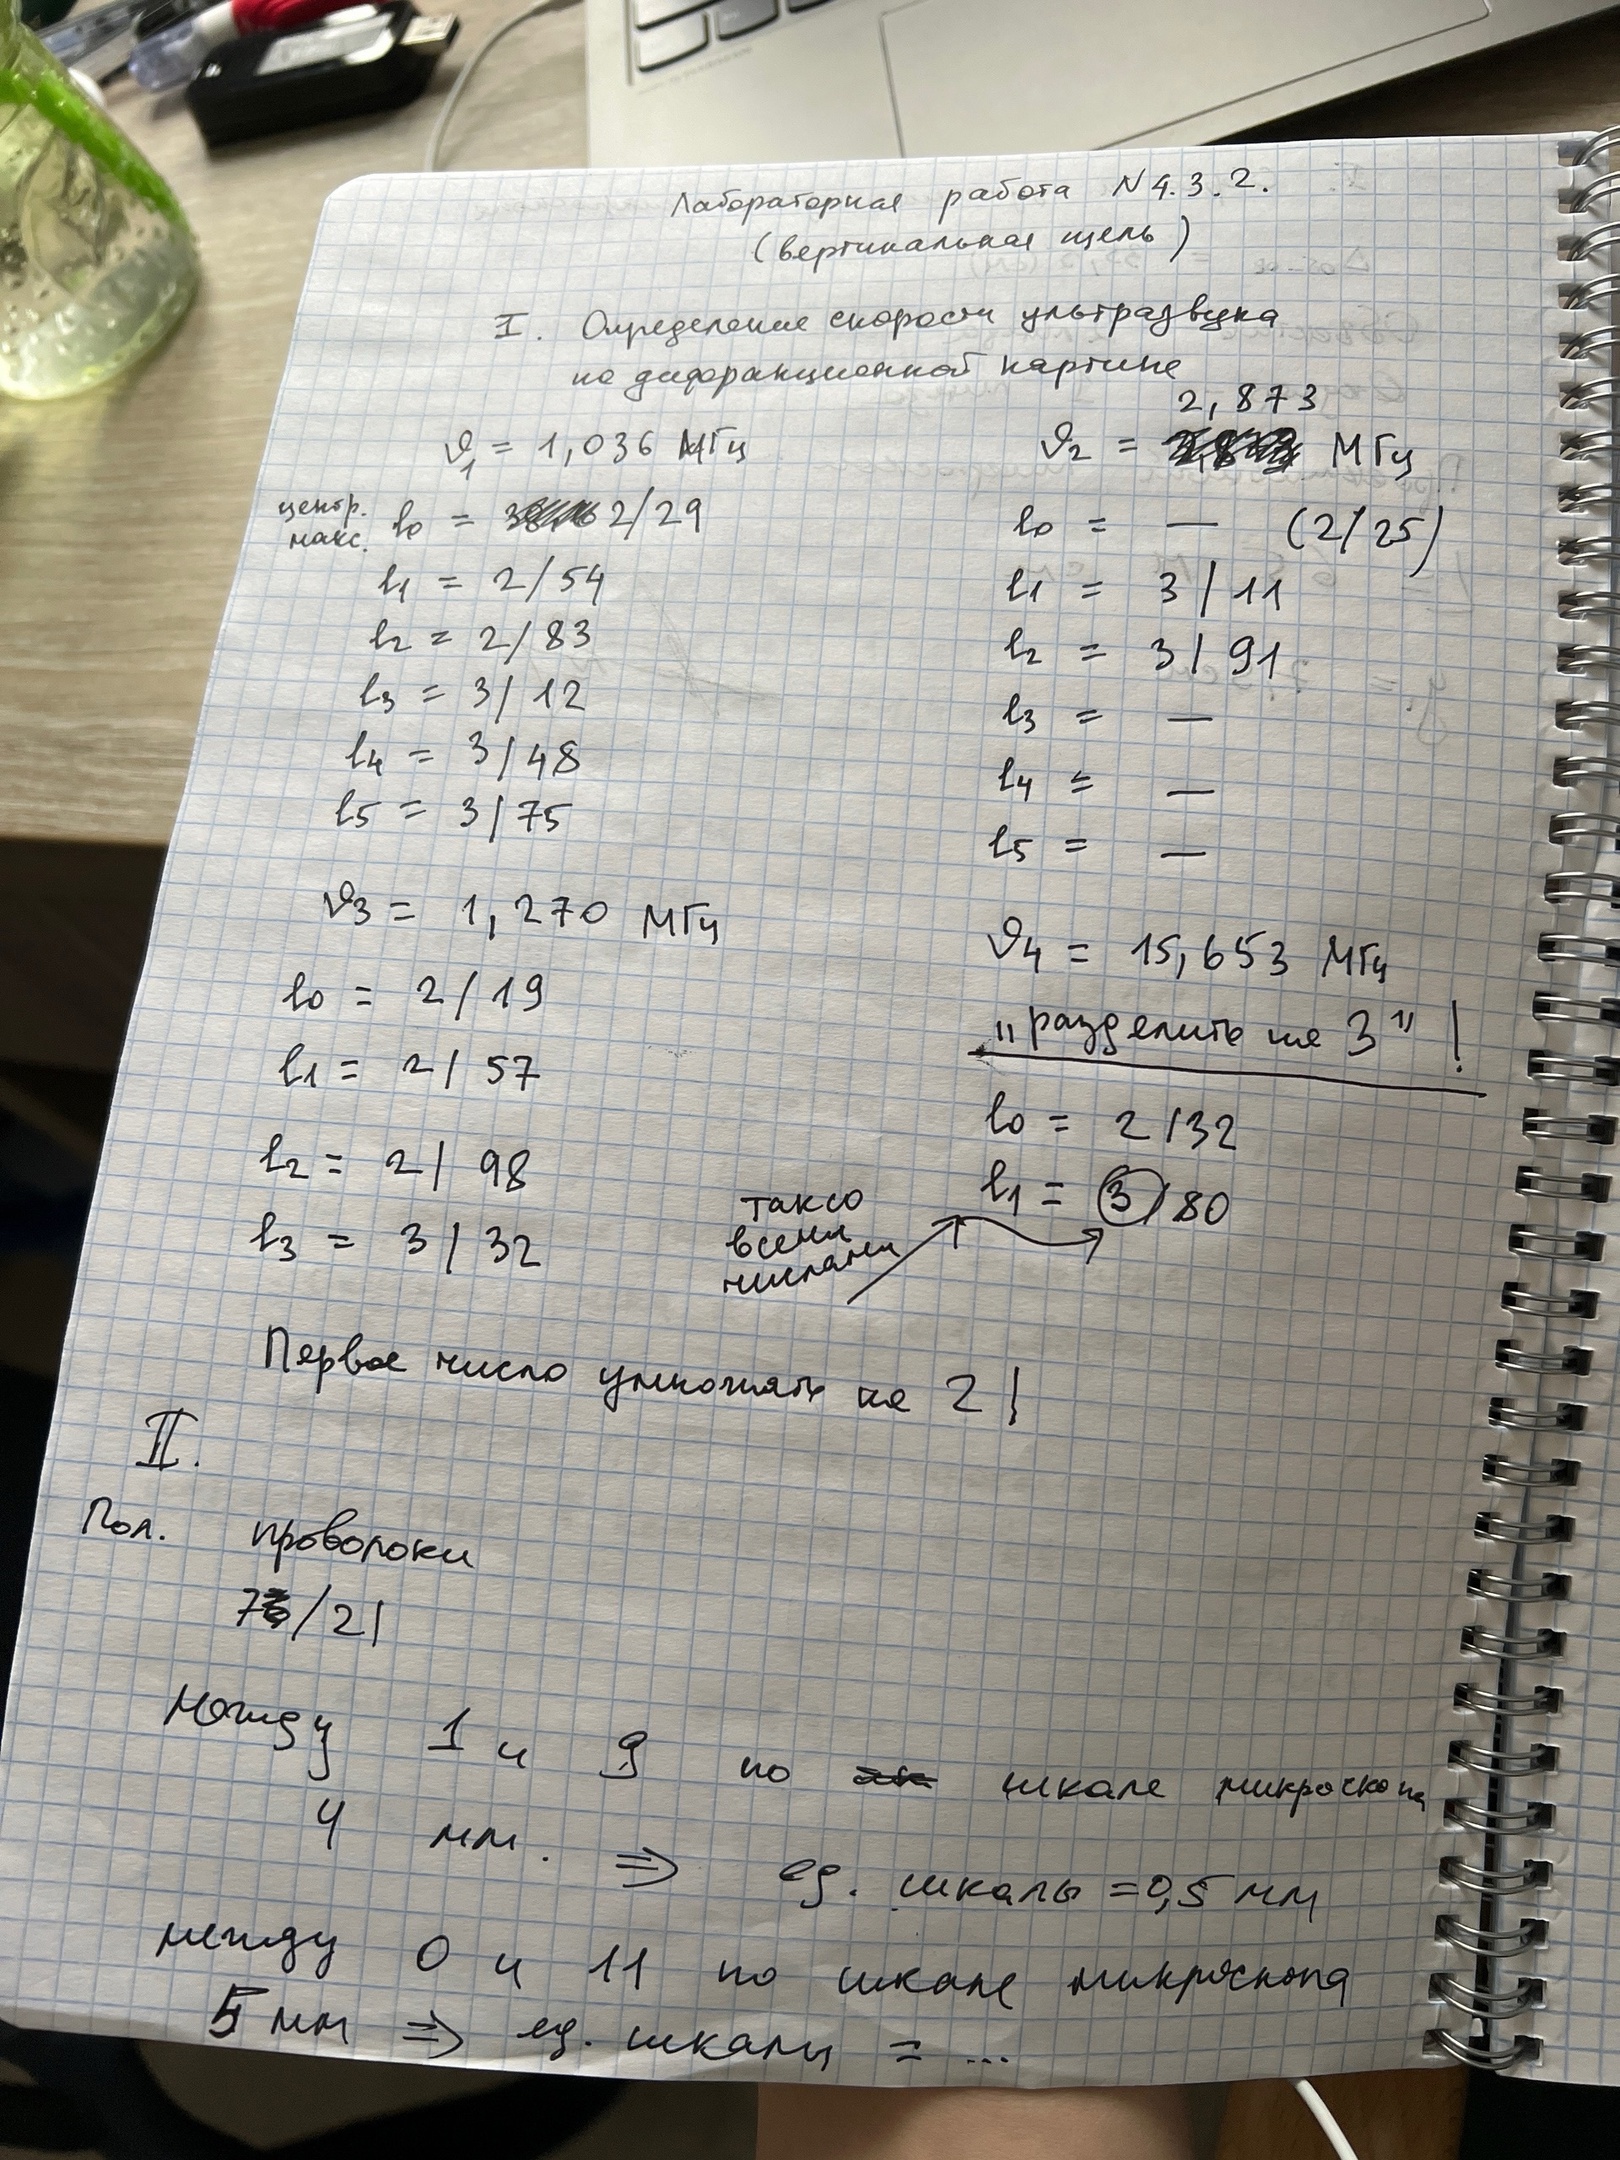 Лабораторная работа N 4.3.2.
(вертикальная щель)
I. Определение скорости ультразвука
по дифракционной картине
ν1 = 1,036 МГц
центр. макс. l0 = 2/29
l1 = 2/54
l2 = 2/83
l3 = 3/12
l4 = 3/48
l5 = 3/75
2,873
ν2 = МГц
l0 = — (2/25)
l1 = 3/11
l2 = 3/91
l3 = —
l4 = —
l5 = —
ν3 = 1,270 МГц
l0 = 2/19
l1 = 2/57
l2 = 2/98
l3 = 3/32
ν4 = 15,653 МГц
"разделить на 3"!
l0 = 2/32
l1 = 3/80
так со
всеми
числами
Первое число умножать на 2!
II.
Пол. проволоки
/21
между 1 и 9 по шкале микроскопа
4 мм. ⇒ ед. шкалы = 0,5 мм
между 0 и 11 по шкале микроскопа
5 мм ⇒ ед. шкалы = ...